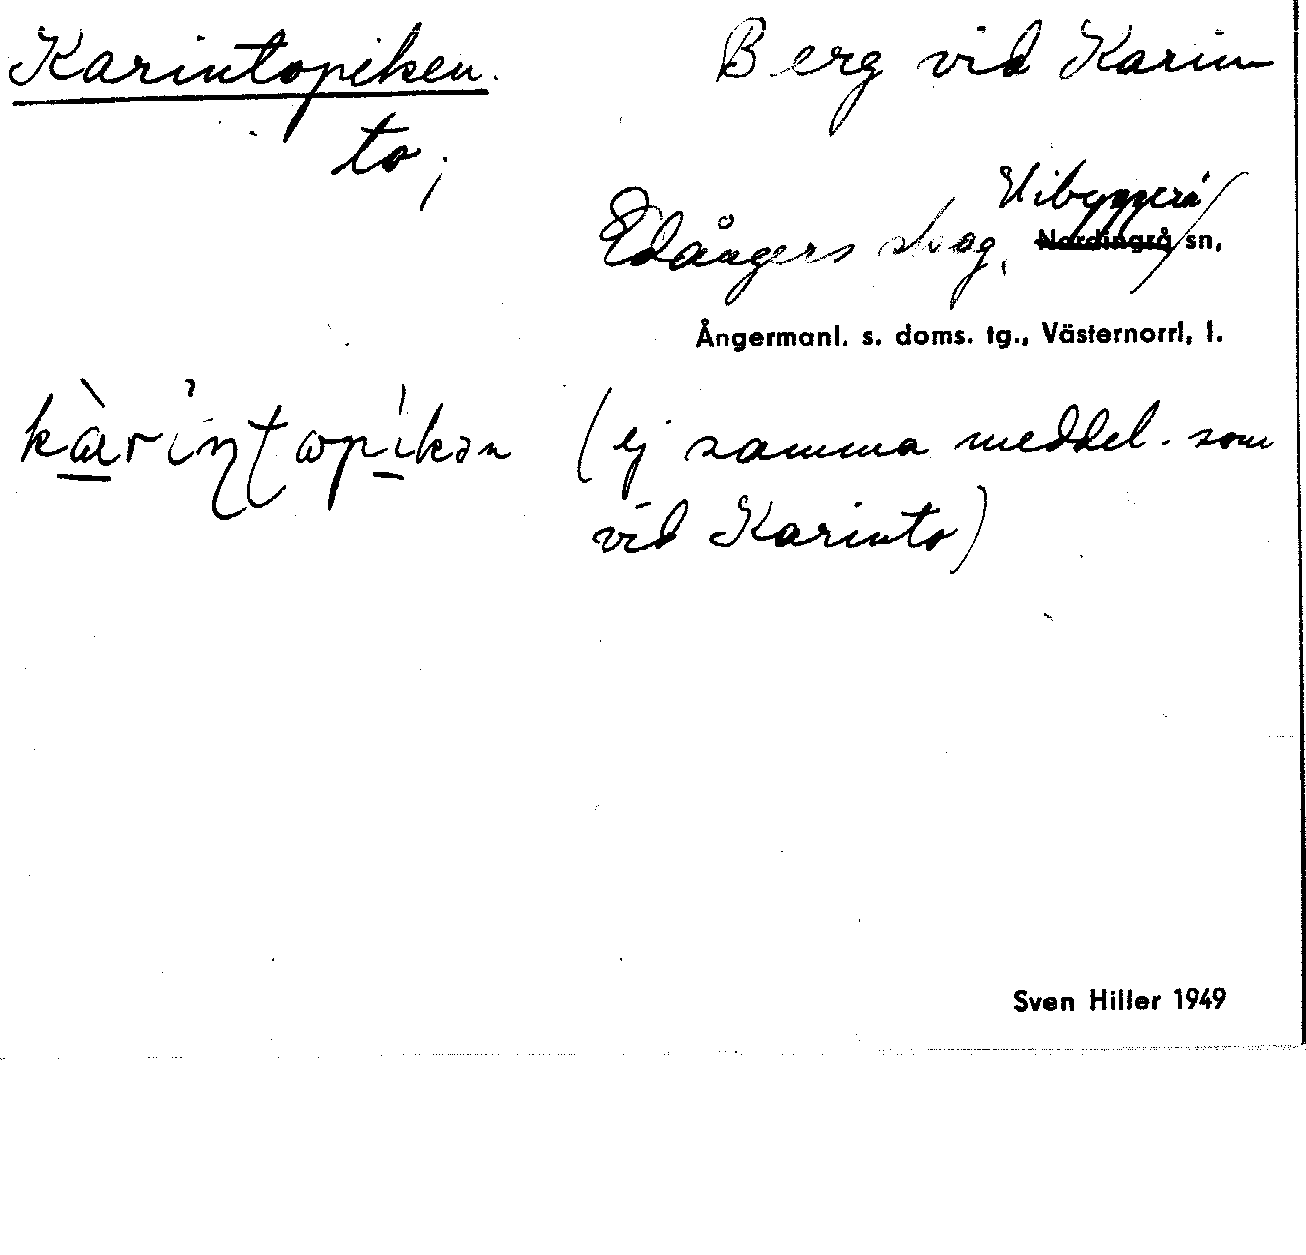 Karintopiken. Berg vid Karin-
to;
Vibyggerå
Edångers skog, Nordingrå sn,
Ångermanl. s. doms. tg., Västernorrl, l.
(ej samma meddel. som
vid Karinto)
Sven Hiller 1949